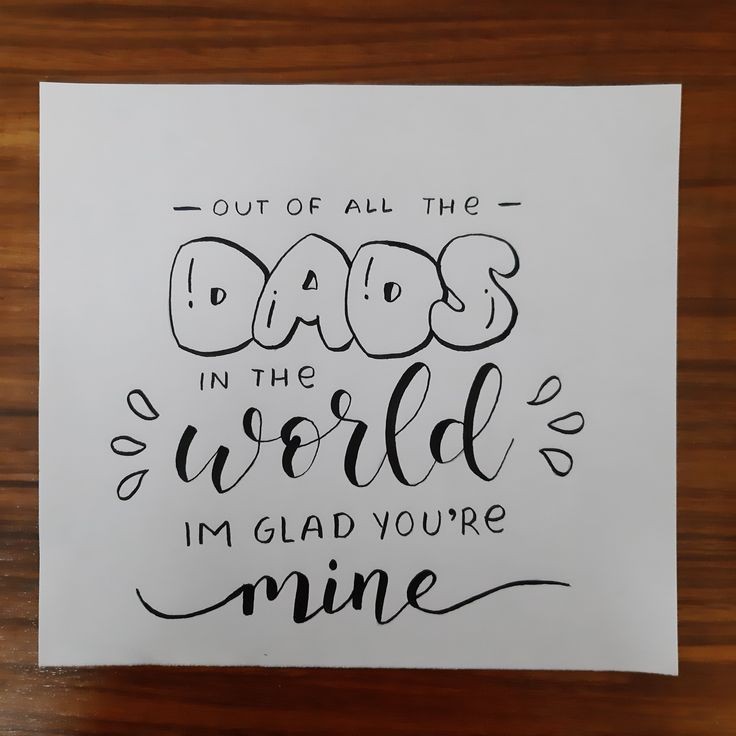 - OUT OF ALL THe -
DADS
IN THe
world
IM GLAD YOU'Re
mine